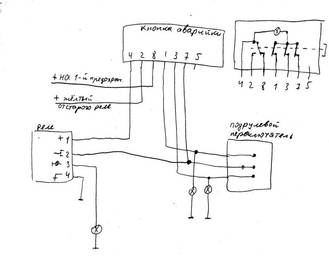 кнопка аварийки
4 2 8 1 3 7 5
4 2 8 1 3 7 5
+ на 1-й предохран.
+ жёлтый
от старого реле
подрулевой
переключатель
реле
+ 1
2
3
4